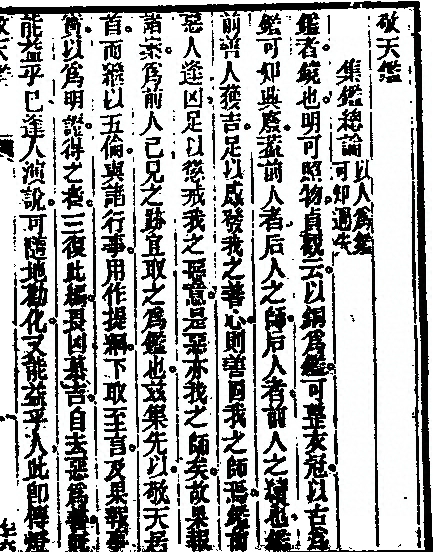 敬天鑑
集鑑總論以人爲鑑可知過失
鑑者鏡也明可照物貞觀云以銅爲鑑可整衣冠以古爲
鑑可知興廢蓋前人者后人之師后人者前人之績也鑑
前善人獲吉足以感發我之善心則善固我之師焉鑑前
惡人逢凶足以懲戒我之惡意是惡亦我之師矣故果報
諸案爲前人已見之跡宜取之爲鑑也茲集先以敬天居
首而繼以五倫與諸行事用作提綱下取至言及果報事
實以爲明證得之者三復此編畏凶慕吉自去惡爲善
能益乎已逢人演說可隨地勸化又能益乎人此即傳燈
敬天鑑